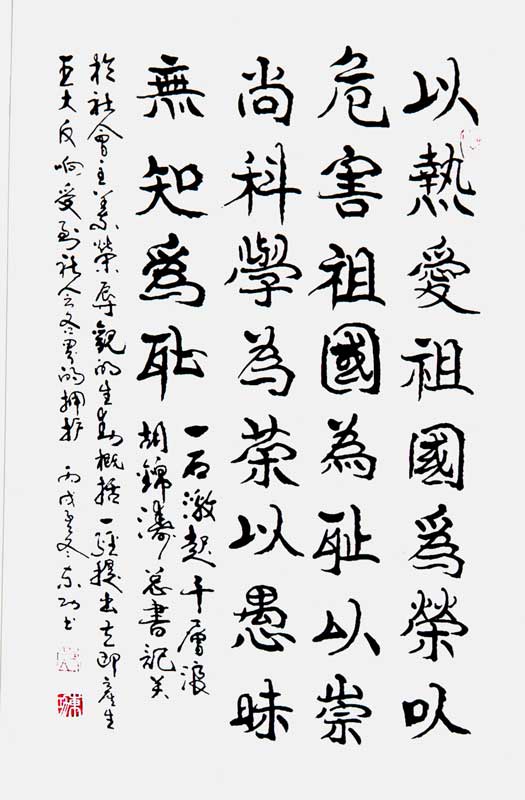 以熱愛祖國爲榮以
危害祖國為耻以崇
尚科學為荣以愚昧
無知爲耻
一石激起千層浪
胡錦濤总書記关
於社會主義榮辱觀的生動概括一經提出立即產生
巨大反响受到社会各界的拥护 丙戌冬东书